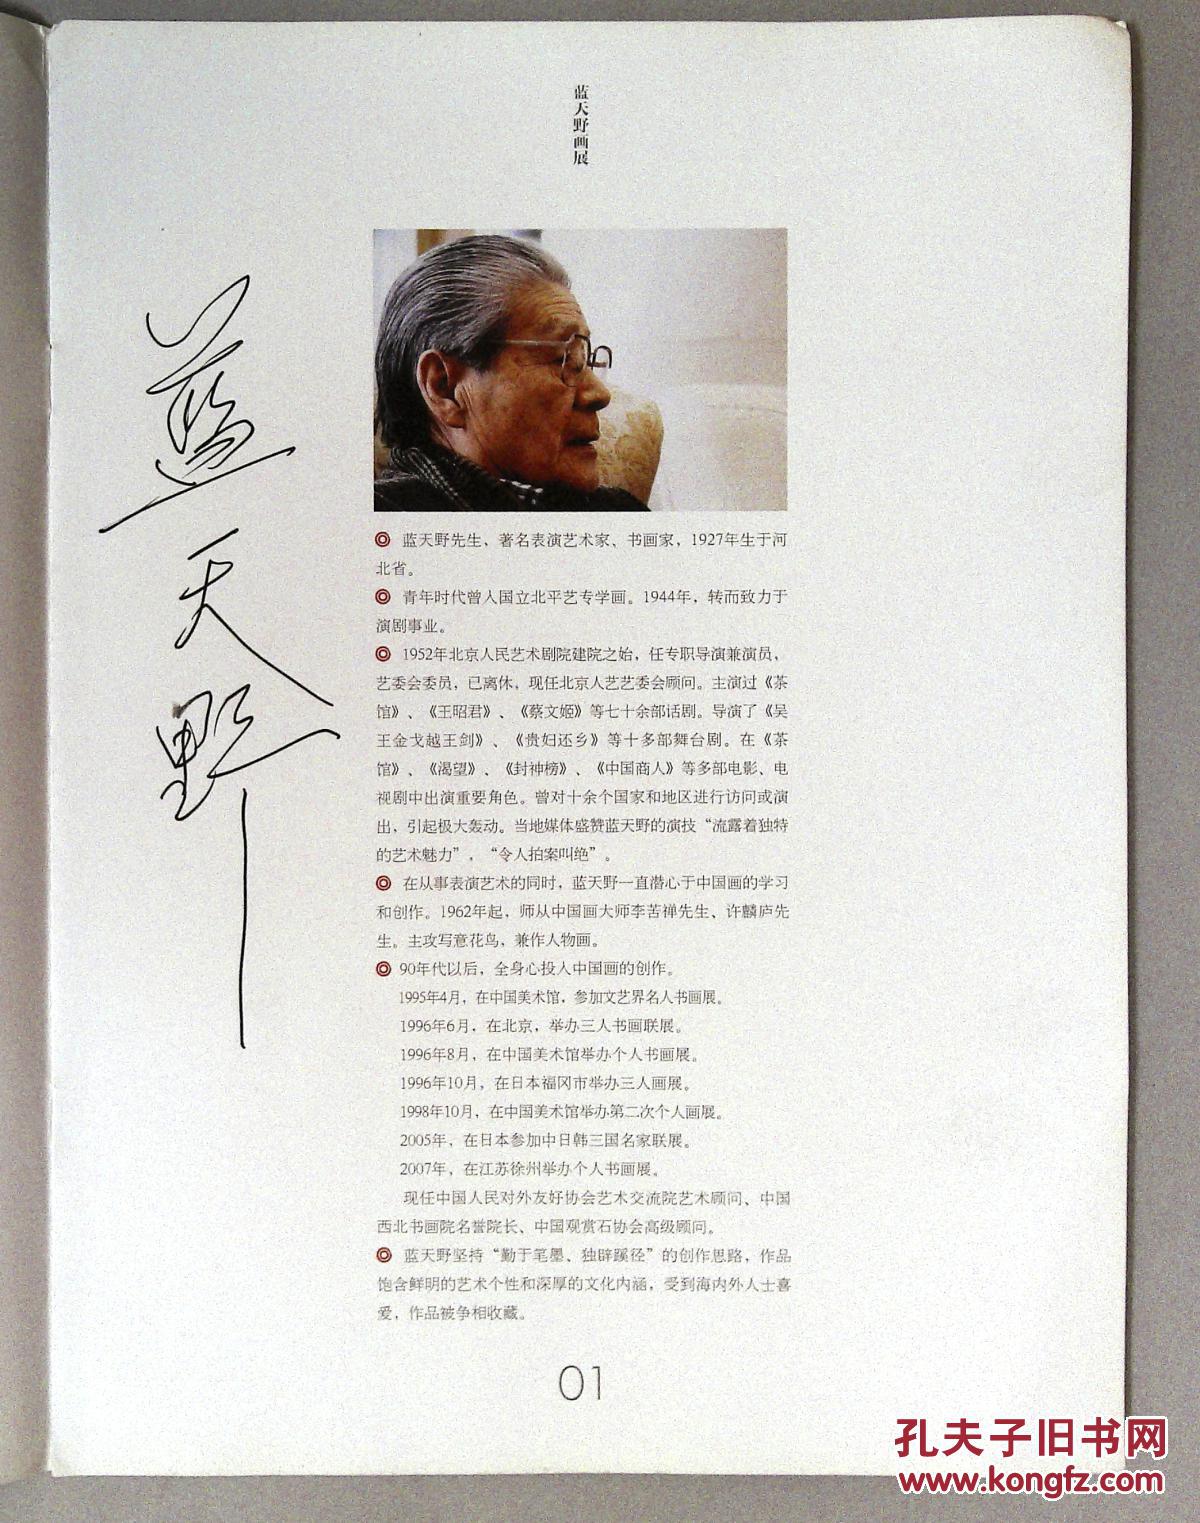 蓝天野画展
蓝天野
蓝天野先生，著名表演艺术家、书画家，1927年生于河
北省。
青年时代曾入国立北平艺专学画。1944年，转而致力于
演剧事业。
1952年北京人民艺术剧院建院之始，任专职导演兼演员，
艺委会委员，已离休，现任北京人艺艺委会顾问。主演过《茶
馆》、《王昭君》、《蔡文姬》等七十余部话剧。导演了《吴
王金戈越王剑》、《贵妇还乡》等十多部舞台剧。在《茶
馆》、《渴望》、《封神榜》、《中国商人》等多部电影、电
视剧中出演重要角色。曾对十余个国家和地区进行访问或演
出，引起极大轰动。当地媒体盛赞蓝天野的演技“流露着独特
的艺术魅力”，“令人拍案叫绝”。
在从事表演艺术的同时，蓝天野一直潜心于中国画的学习
和创作。1962年起，师从中国画大师李苦禅先生、许麟庐先
生。主攻写意花鸟，兼作人物画。
90年代以后，全身心投入中国画的创作。
1995年4月，在中国美术馆，参加文艺界名人书画展。
1996年6月，在北京，举办三人书画联展。
1996年8月，在中国美术馆举办个人书画展。
1996年10月，在日本福冈市举办三人画展。
1998年10月，在中国美术馆举办第二次个人画展。
2005年，在日本参加中日韩三国名家联展。
2007年，在江苏徐州举办个人书画展。
现任中国人民对外友好协会艺术交流院艺术顾问、中国
西北书画院名誉院长、中国观赏石协会高级顾问。
蓝天野坚持“勤于笔墨、独辟蹊径”的创作思路，作品
饱含鲜明的艺术个性和深厚的文化内涵，受到海内外人士喜
爱，作品被争相收藏。
01
孔夫子旧书网
www.kongfz.com